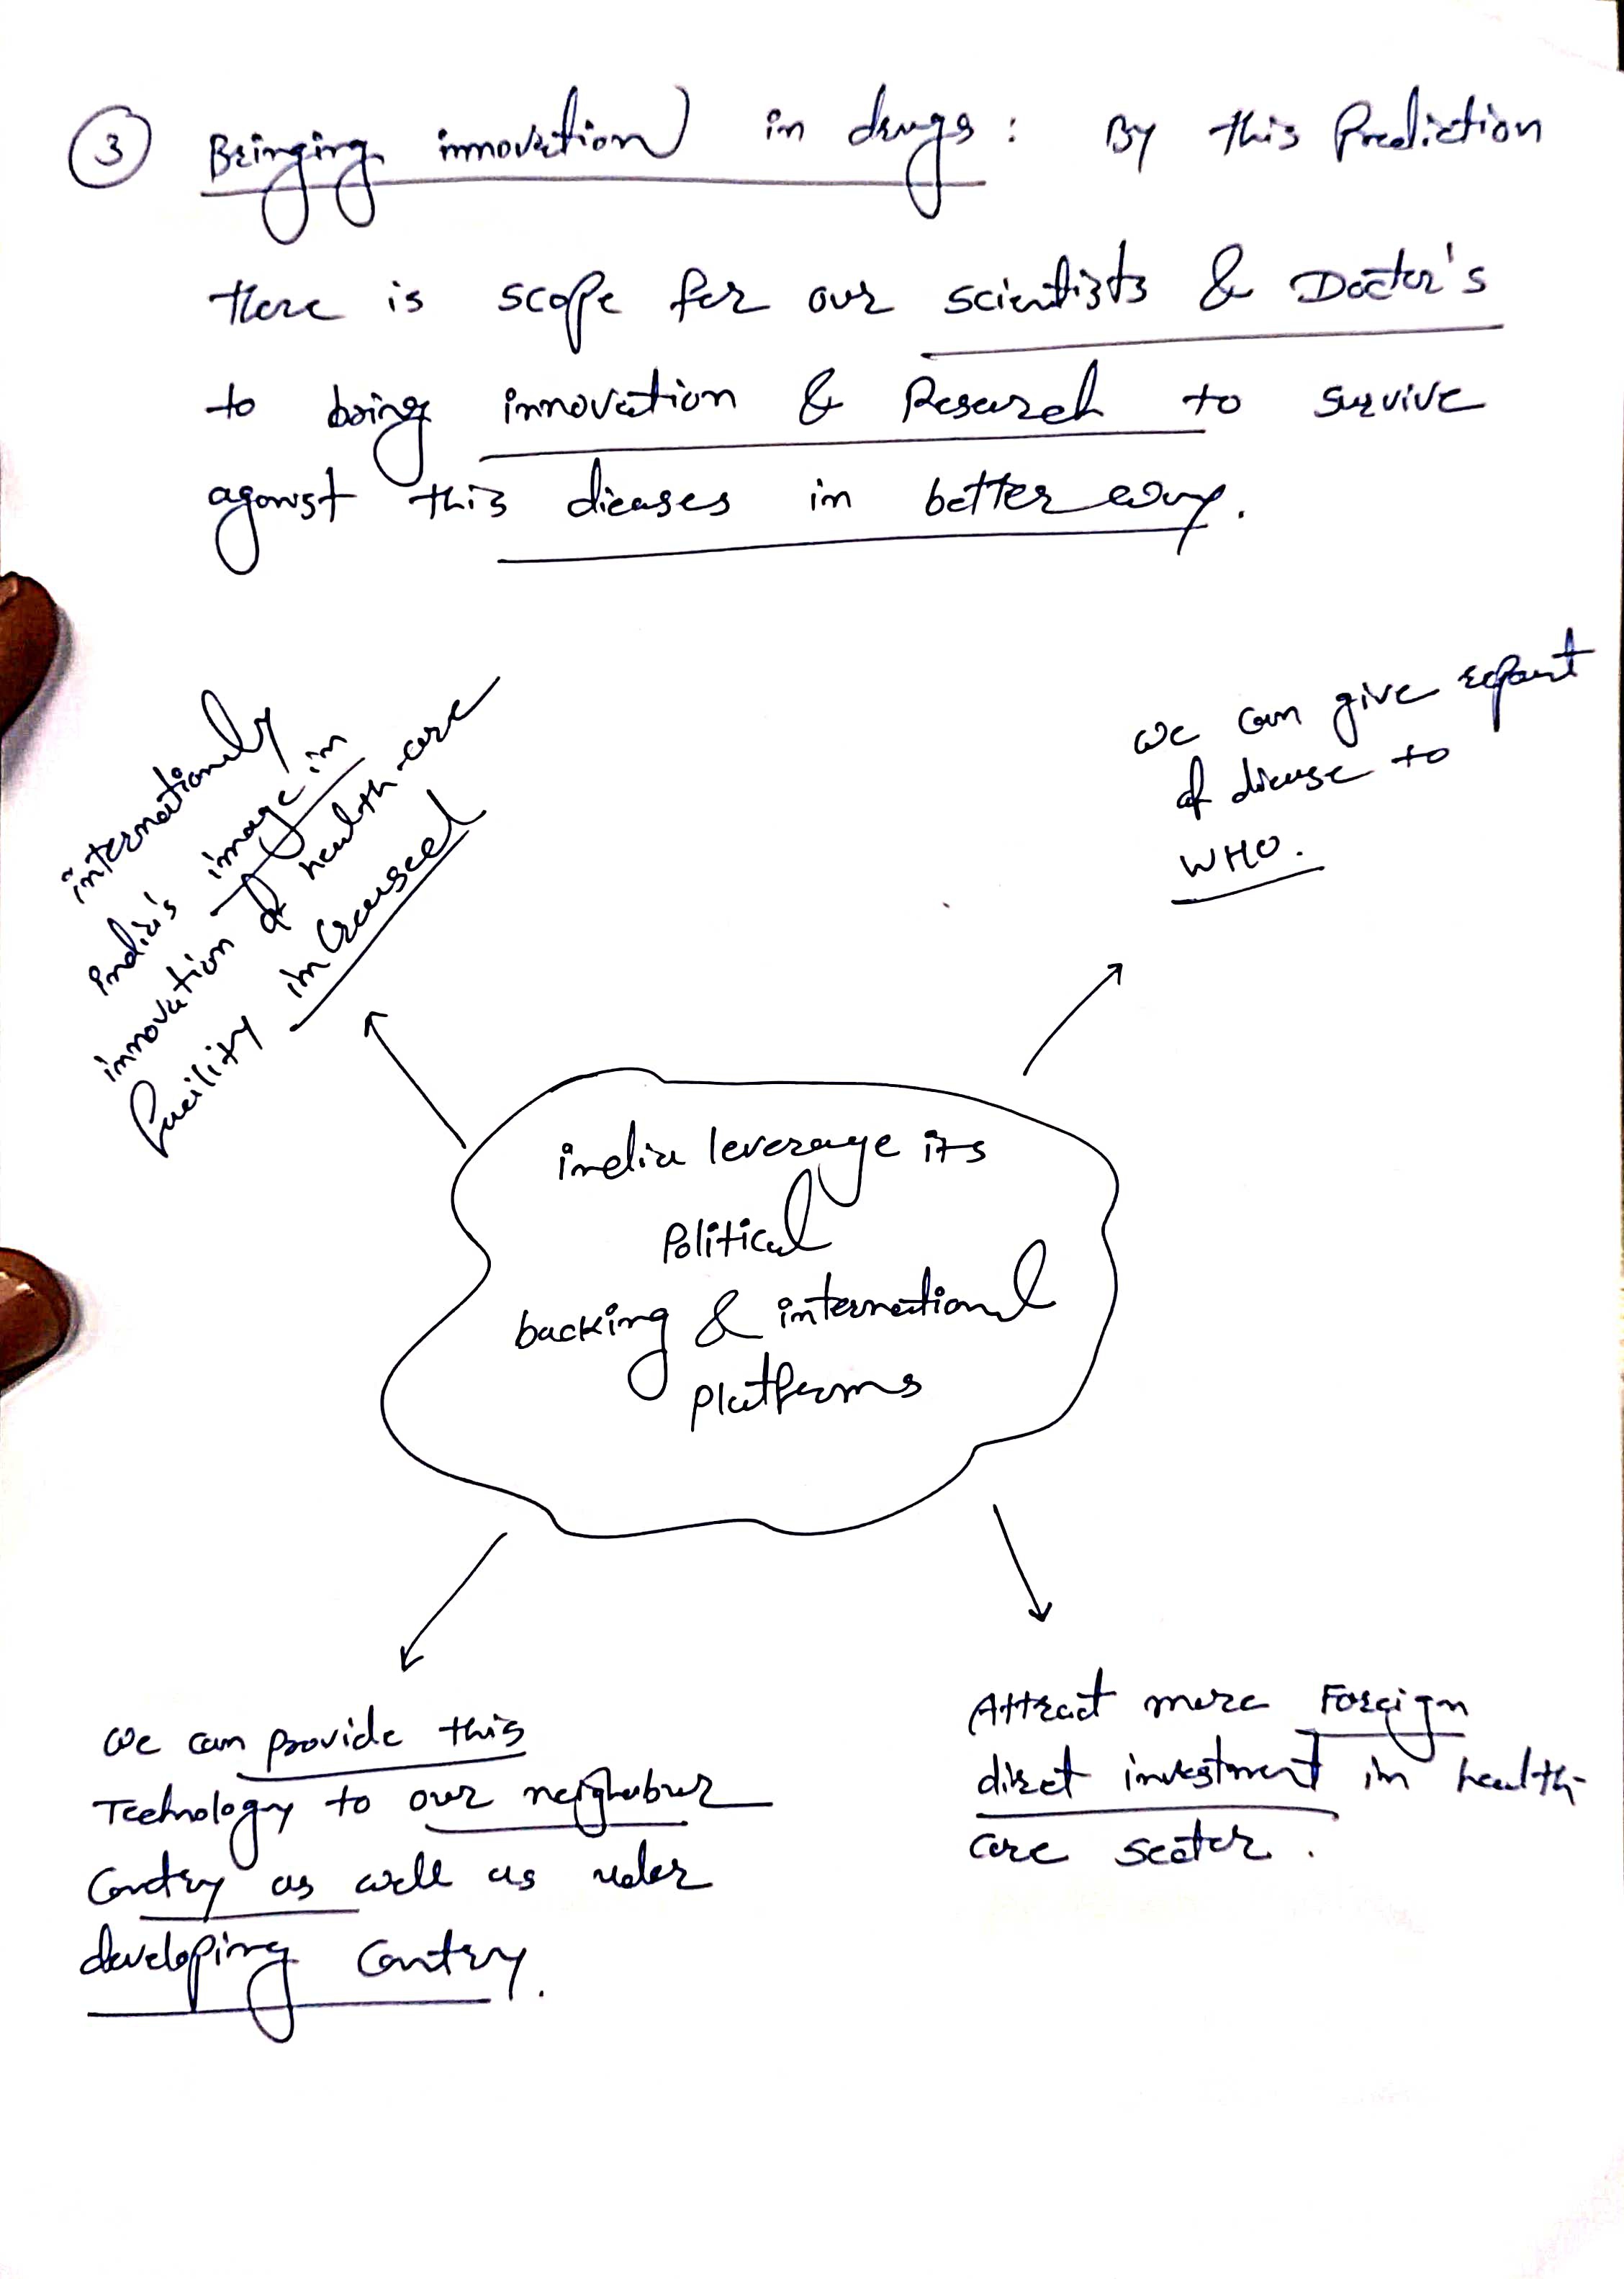 ③ Bringing innovation in drugs : By this Prediction
there is scope for our scientists & Doctor's
to bring innovation & Research to survive
against this dieases in better way.
internationaly
india's image in
innovation & health-care
facility increased
we can give report
of diease to
WHO.
india leverage its
Political
backing & international
platforms
we can provide this
Technology to our neighobur
Contry as well as
developing Contry.
Attract more Foreign
diret investment in health-
care sector.